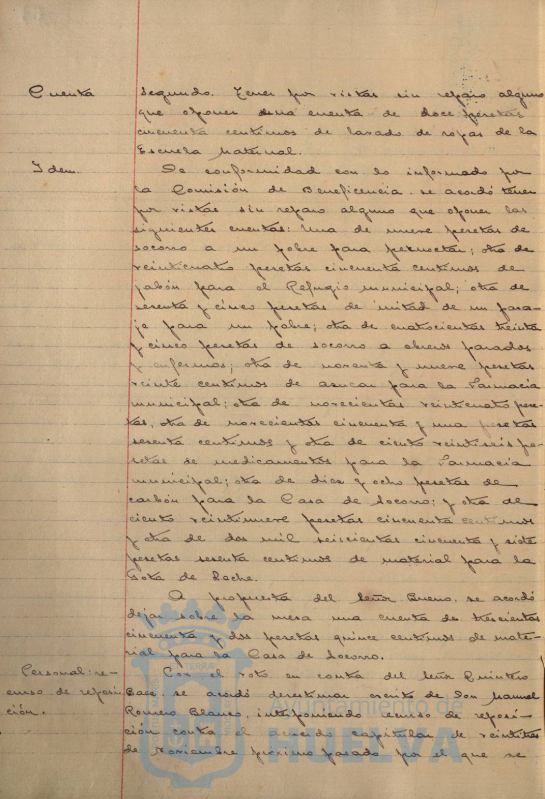 Cuenta
segundo. Tener por vistas sin reparo alguno
que oponer una cuenta de doce pesetas
cincuenta centimos de lavado de ropas de la
Escuela Maternal.
Idem.
De conformidad con lo informado por
la Comisión de Beneficencia se acordó tener
por vistas sin reparo alguno que oponer las
siguientes cuentas: Una de nueve pesetas de
socorro a un pobre para pernoctar; otra de
veinticuatro pesetas cincuenta centimos de
jabón para el Refugio municipal; otra de
sesenta y cinco pesetas de mitad de un pasa-
je para un pobre; otra de cuatrocientas treinta
y cinco pesetas de socorro a obreros parados
y enfermos; otra de noventa y nueve pesetas
veinte centimos de azucar para la Farmacia
municipal; otra de novecientas veinticuatro pese-
tas, otra de novecientas cincuenta y una pesetas
sesenta centimos y otra de ciento veintiseis pe-
setas de medicamentos para la Farmacia
municipal; otra de diez y ocho pesetas de
carbón para la Casa de Socorro; y otra de
ciento veintinueve pesetas cincuenta centimos
y otra de dos mil seiscientas cincuenta y siete
pesetas sesenta centimos de material para la
Gota de Leche.
A propuesta del Señor Bueno, se acordó
dejar sobre la mesa una cuenta de trescientas
cincuenta y dos pesetas quince centimos de mate-
rial para la Casa de Socorro.
Personal: re-
curso de reposi-
ción.
Con el voto en contra del Señor Quintero
Baez se acordó desestimar escrito de Don Manuel
Romero Blanco, interponiendo recurso de reposi-
ción contra el acuerdo capitular de veintitres
de Noviembre próximo pasado por el que se
Ayuntamiento de
HUELVA